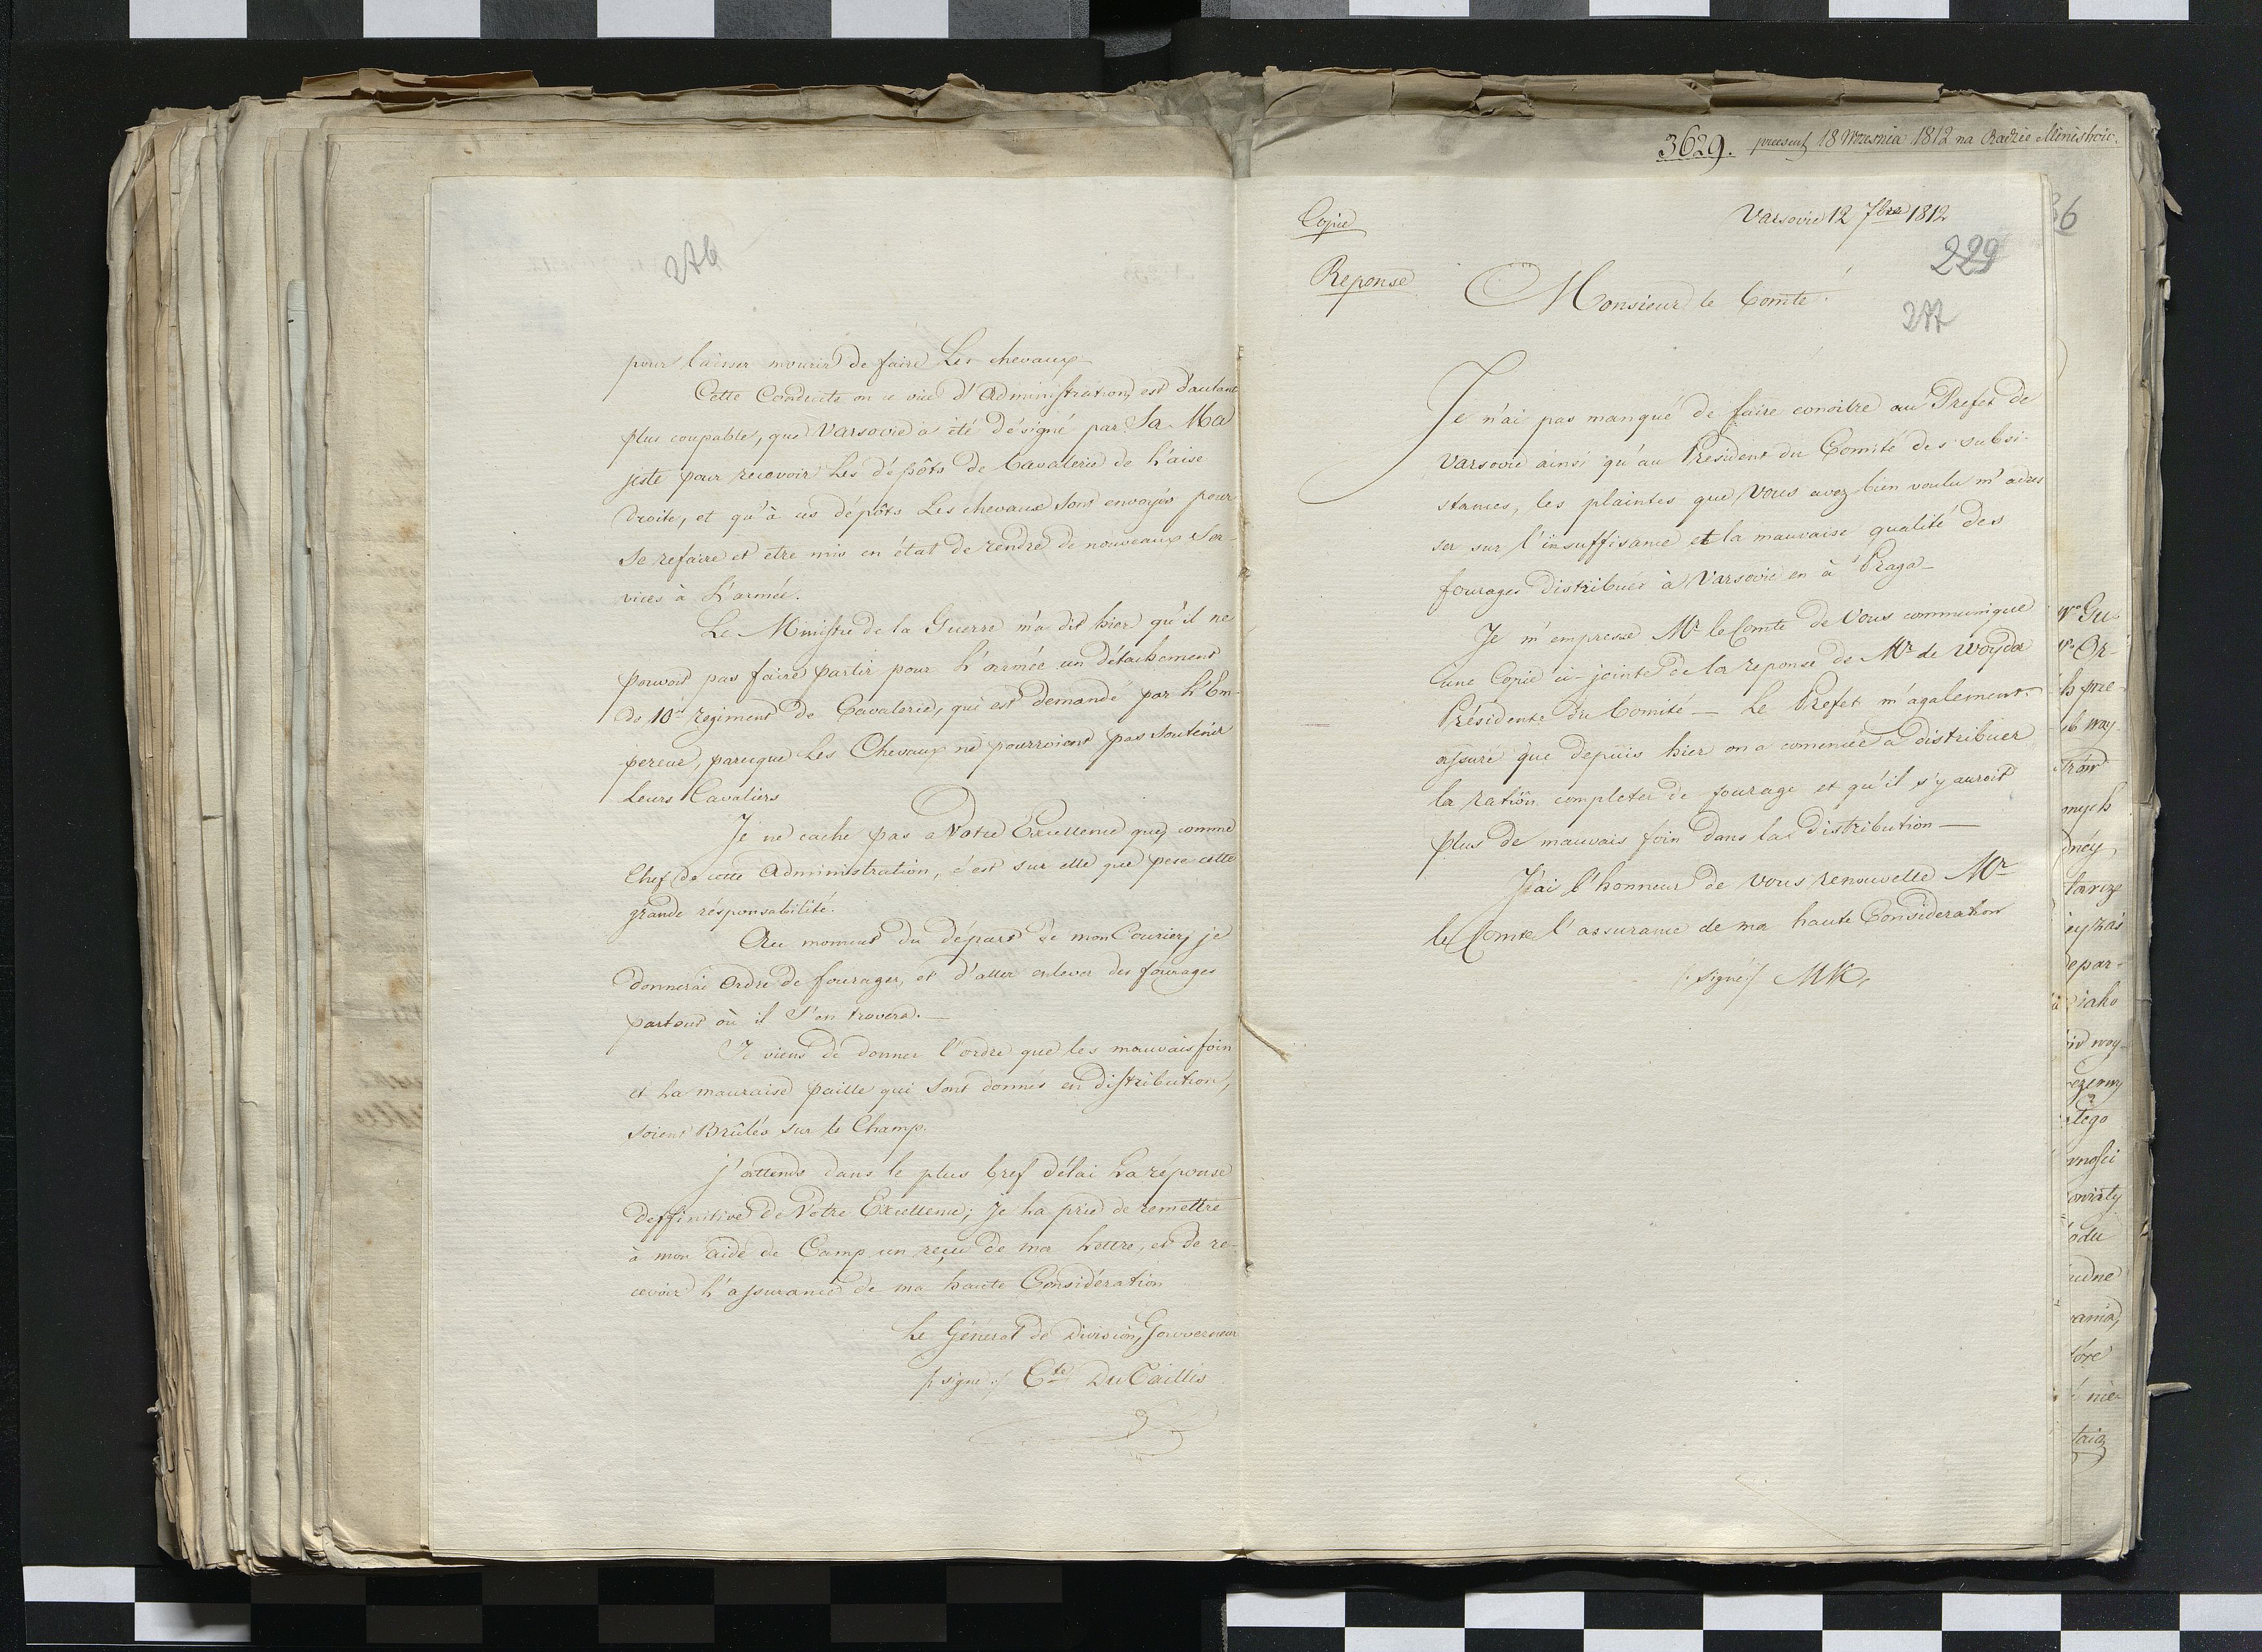 276
pour laisser mourir de faire Les chevaux
Cette Conduite on a vue d'Administration, est d'autant
plus coupable, que Varsovie a été désigné par Sa Ma
jeste pour recevoir Les dépôts de Cavalerie de L'aise
Droite, et qu'à ces dépôts Les chevaux sont envoyés pour
se refaire et etre mis en état de rendre de nouveaux Ser-
vices à L'armée.
Le Ministre de la Guerre m'a dit hier qu'il ne
pouvoit pas faire partir pour L'armée un détachement
de 10e regiment de Cavalerie, qui est demandé par L'Em-
pereur, parceque Les Chevaux ne pourroient pas soutenir
Leurs Cavaliers
Je ne cache pas a Votre Excellence que, comme
Chef de cette Administration, c'est sur elle que pese cette
grande résponsabilité.
Au moment du départ de mon Courier, je
donnerai Ordre de fourager, et d'aller enlever des fourages
partout où il s'en trovera.—
Je viens de donner l'ordre que les mauvais foin
et La mauvaise paille qui sont donnés en distribution,
soient Brûlés sur le Champ.
j'attends dans le plus bref délai La réponse
deffinitive de Votre Excellence; Je La prie de remettre
à mon aide de Camp un reçu de ma Lettre, et de re-
cevoir L'assurance de ma haute Considération
Le Géneral de Division, Gouverneur
/: signé :/ Cte Du Taillis
3629. praesent 18 Września 1812 na Radzie Ministrów.
Copie
Varsovie 12 7bre 1812
229
Reponse
Monsieur le Comte!
277
Je n'ai pas manqué de faire conoitre au Prefet de
Varsovie ainsi qu'au President du Comité des subsi-
stances, les plaintes que Vous avez bien voulu m'adres
ser sur l'insuffisance et la mauvaise qualité des
fourages distribués à Varsovie en à Praga—
Je m'empresse Mr le Comte de Vous communique
une Copie ci-jointe de la reponse de Mr de Woyda
Présidente du Comité — Le Prefet m'agalement
assuré que depuis hier on a comencée a distribuer
la ration completer de fourage et qu'il s'y auroit
plus de mauvais foin dans la distribution—
J'ai l'honneur de vous renouvelle Mr
le Comte l'assurance de ma haute Consideration
/: signé :/ MK,